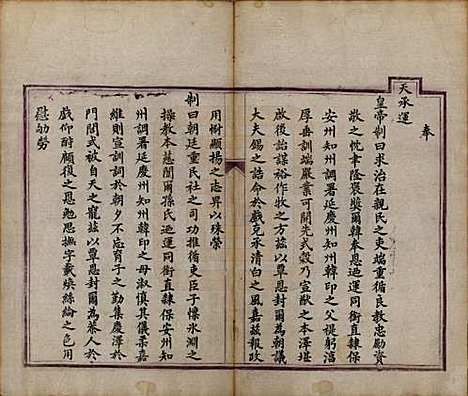 奉
天承運
皇帝制曰求治在親民之吏端重循良教忠勵資
敬之忱聿隆褒獎爾韓本恩運同銜直隸保
安州知州調署延慶州知州韓印之父褆躬淳
厚垂訓端嚴業可開先式榖乃宣猷之本澤堪
啟後詒謀裕作牧之方茲以覃恩封爾為朝議
大夫錫之誥命於戲克承清白之風嘉茲報政
用慰顯揚之志畀以殊榮
制曰朝廷重民社之司功推循吏臣子懷冰淵之
操教本慈闈爾孫氏運同銜直隸保安州知
州調署延慶州知州韓印之母淑慎其儀柔嘉
維則宣訓詞於朝夕不忘育子之勤集慶澤於
門閭式被自天之寵茲以覃恩封爾為恭人於
戲仰酬顧復之恩勉思撫字載煥絲綸之色用
慰劬勞